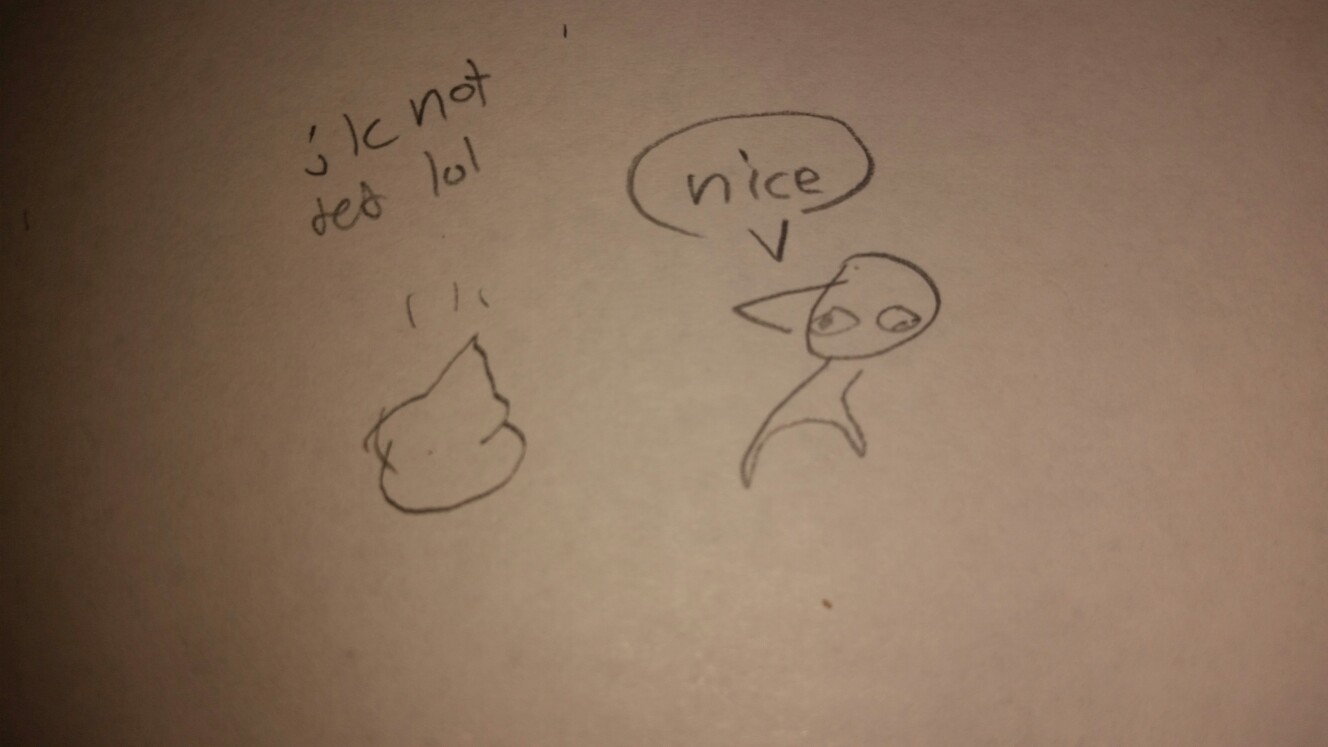 jk not
ded lol
nice